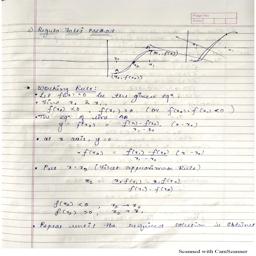 Regula Falsi Method
(x₀, f(x₀))
• Working Rule:
• Let f(x) = 0 be the given eqⁿ.
• Find x₀ & x₁
f(x₀) < 0 f(x₁) > 0 f(x₀).f(x₁) < 0
• The eqⁿ of line AB
y - f(x₀) = f(x₁) - f(x₀) (x - x₀)
x₁ - x₀
• at x axis, y = 0
- f(x₀) = f(x₁) - f(x₀) (x - x₀)
x₁ - x₀
• Put x = x₂ (First approximation Root)
x₂ = x₀ f(x₁) - x₁ f(x₀)
f(x₁) - f(x₀)
f(x₂) < 0
f(x₂) > 0
• Repeat until the required solution is obtained
Scanned with CamScanner